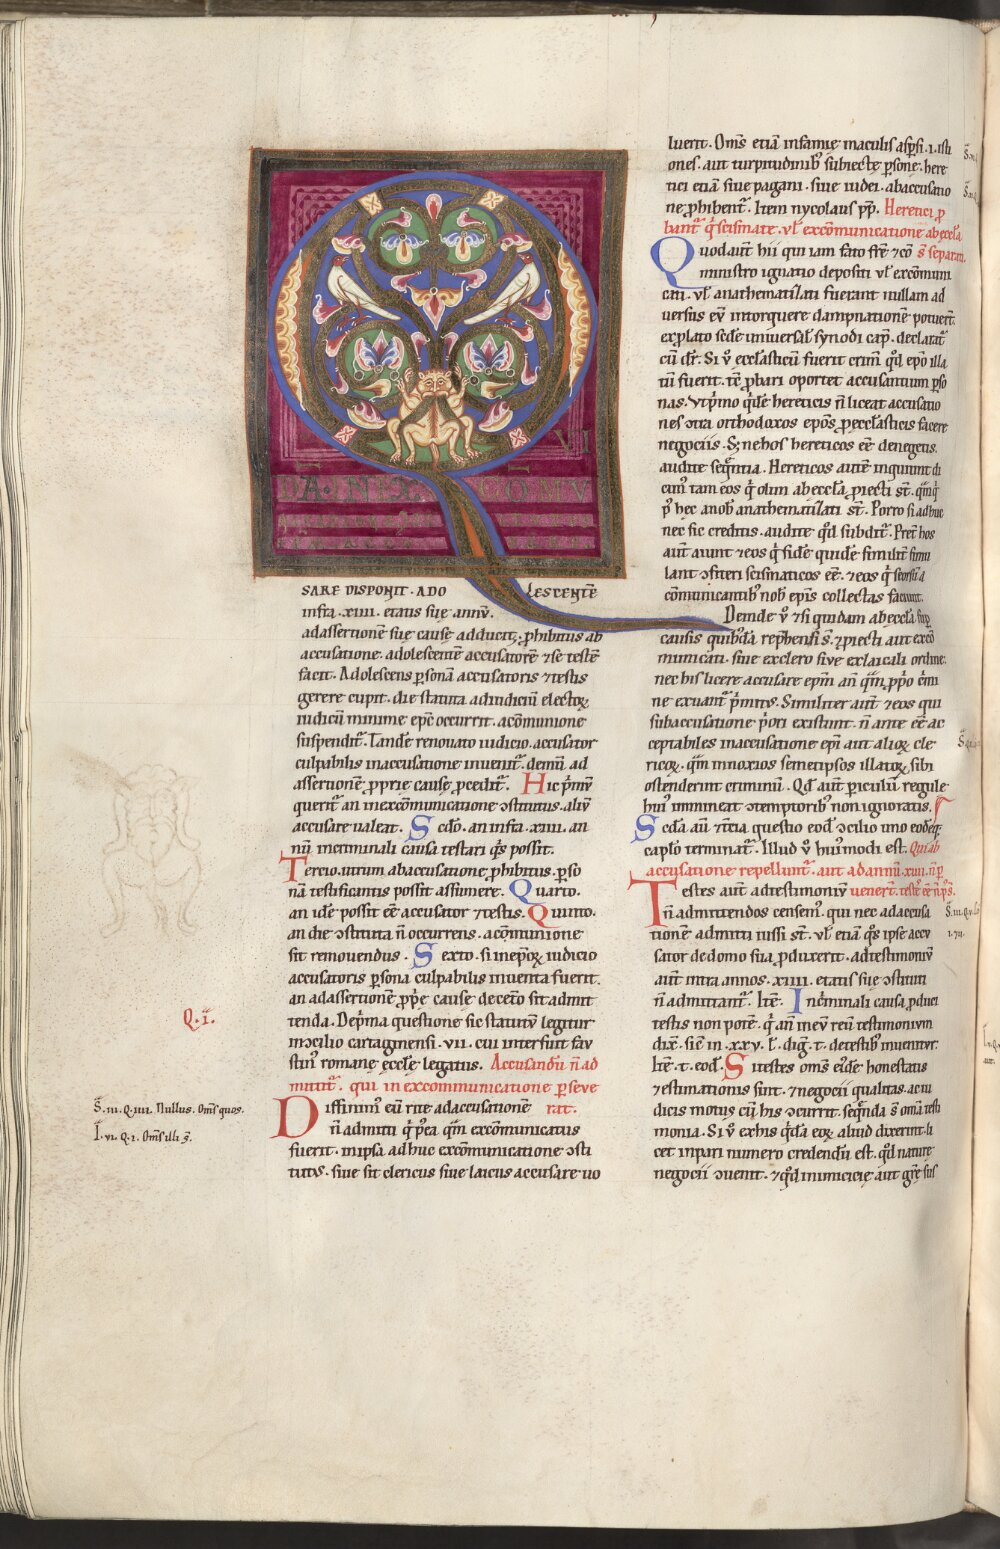 Q
VI
DĀ·IN EX COMV
SARE DISPONIT. ADO LESCENTĒ
infra .xiiii. etatis suę annv̄.
adassertionē suę causę adducit, ꝓhibitus ab
accusatione. adolescentē accusatorē ⁊ se testē
facit. Adolescens ꝑsonā accusatoris ⁊ testis
gerere cupit. die statuta adiudiciū electoꝝ
iudiciū minime epc̄ occurrit. acōmunione
suspendit᷑. Tandē renovato iudicio. accusator
culpabilis inaccusatione invenit᷑. demū ad
assertionē ꝓprię causę ꝓcedit᷑. Hic p̓mv̄
querit᷑ an inexcōmunicatione ꝯstitutus. aliv̄
accusare valeat. Scd̄o. an infra .xiiii. an
nū incriminali causa testari q̓s possit.
Tercio. utrum abaccusatione ꝓhibitus. ꝑso
nā testificantis possit assumere. Quarto.
an idē possit eē accusator ⁊ testis. Quinto.
an die ꝯstituta n̄ occurrens. acōmunione
sit removendus. Sexto. si inepōꝝ iudicio
accusatoris ꝑsona culpabilis inventa fuerit.
an adassertionē ꝓp̓e cause decet̓o sit admit
tenda. Dep̓ma questione sic statutv̄ legitur
inꝯcilio cartaginensi .vii. cui interfuit fav
stin᷒ romane ęcclę legatus. Accusandū n̄ ad
mittit᷑. qui in excommunicatione ꝑseve
Diffinim᷒ eū rite adaccusationē rat.
n̄ admitti q̓ p᷒ea qm̄ excōmunicatus
fuerit. inipsa adhuc excōmunicatione ꝯsti
tutus. sive sit clericus sive laicus accusare vo
Q. i.
S̄. iii. Q. iiii. Nullus. Om̄s quos.
I. vi. Q. i. Om̄s illi s̄.
luerit. Om̄s etiā infamię maculis aspsi. i. istri
ones. aut turpitudinib᷒ subiectę ꝑsonę. here
tici etiā sive pagani. sive iudei. abaccusatio
ne ꝓhibent᷑. Item nycolaus pp̄. Heretici ꝓ
bant᷑ q̓ scismate. vl̄ excōmunicatione abęccl̄a
Quodaut̄ hii qui iam fato fr̄e ⁊ cō s̄ separati.
ministro ignatio depositi vl̄ excōmuni
cati. vl̄ anathematizati fuerant nullam ad
versus ev̄ intorquere dampnationē potuer̄t.
ex plato sedę universal̓ synodi cap̄. declarat᷑
cū dr̄. Si v̓ eccl̄asticū fuerit crim̄ qd̄ epō illa
tū fuerit. tē ꝓbari oportet accusantium ꝑso
nas. Vtp̓mo q̓dē hereticis n̄ liceat accusatio
nes ꝯtra orthodoxos epōs ꝓ eccl̄asticis facere
negociis. S; nehos hereticos eē denegetis.
audite seq̄ntia. Hereticos autē inquiunt di
cim᷒ tam eos q̓ olim abęccl̄a ꝓiecti st̄. q̄mq̓
p᷒ hec anob̄ anathematizati st̄. Porro si adhuc
nec sic creditis. audite qd̄ subdit᷑. Pret̓ hos
aut̄ aiunt ⁊ eos q̓ fidē quidē similit̓ simu
lant ꝯfiteri scismaticos eē. ⁊ eos q̓ seorsū a
cōmunicantib᷒ nob̄ epīs collectas faciunt.
Deinde v̓ ⁊ si quidam abęccl̄a sup
causis quib᷒dā rep̄hensi s̄. ⁊ ꝓiecti aut excō
municati. sive exclero sive exlaicali ordine.
nec his licere accusare epm̄ an̄ qm̄ ꝓp̓o c̓mi
ne exuant᷑ p̓mitus. Similiter aut̄ ⁊ eos qui
subaccusatione p̓ori existunt. n̄ ante eē ac
ceptabiles inaccusatione epī aut alioꝝ cle
ricoꝝ. qm̄ innoxios semetipsos illatoꝝ sibi
ostenderint criminū. Qd̄ aut̄ periculū regule
hui᷒ immineat ꝯtemptorib᷒ non ignoratis.
Scd̄a aū ⁊ t̓tia questio eod̄ ꝯcilio uno eodēq;
capl̄o terminat᷑. Illud v̓ hui᷒modi est. Qui ab
accusatione repellunt᷑. aut ad annū .xiiii. n̄ ꝑ
Testes aut̄ adtestimoniv̄ uener̄t. testes eē n̄ pn̄s.
n̄ admittendos censem᷒. qui nec adaccusa
tionē admitti iussi st̄. vl̄ etiā q̓s ipse accu
sator dedomo sua ꝓduxerit. adtestimoniv̄
aut̄ intra annos .xiiii. etatis suę ꝯstituti
n̄ admittant᷑. Itē. Inc̓minali causa ꝓduci
testis non potē. q̓ an̄ inev̄ reū testimonivm
dix̄. sic̄ in .xxv. l̄. dig̓. t̄. detestib᷒ invenitur.
Itē. t̄. eod̄. Si testes om̄s ei᷒dē honestatis
⁊ estimationis sint. ⁊ negocii qualitas. ac iu
dicis motus cū his ꝯcurrit. seq̄nda s̄ om̄ia testi
monia. Si v̓ exhis q̓dā eoꝝ aliud dixerint. li
cet inpari numero credendū est. qd̄ naturę
negocii ꝯvenit. ⁊ qd̄ inimicicię aut gr̄ę sus